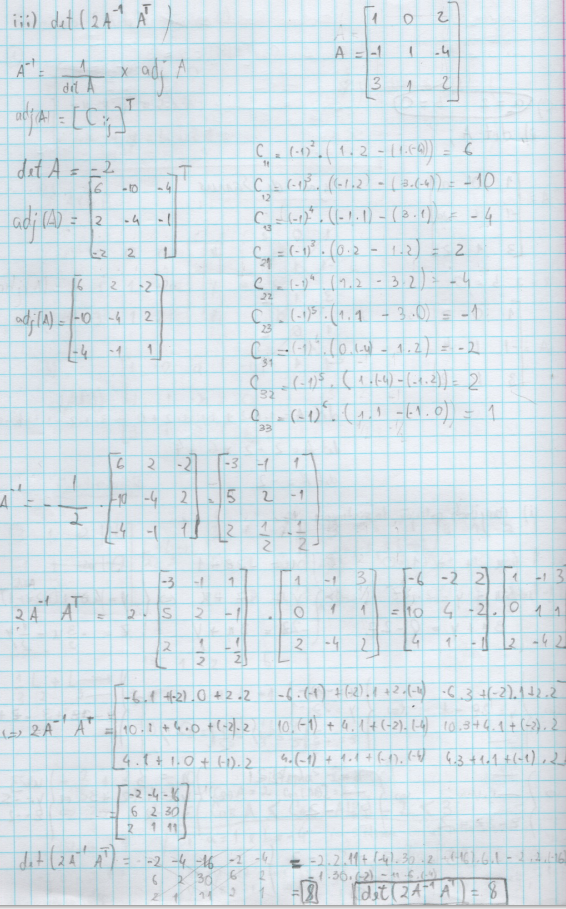 iii) det(2A⁻¹ Aᵀ)
A = [1 0 2
-1 1 -4
3 1 2]
A⁻¹ = 1/det A x adj A
adj(A) = [Cij]ᵀ
det A = -2
adj(A) = [6 -10 -4
2 -4 -1
-2 2 1]ᵀ
adj(A) = [6 2 -2
-10 -4 2
-4 -1 1]
C₁₁ = (-1)²·(1.2 - (1.(-4)) = 6
C₁₂ = (-1)³·((-1.2) - (3.(-4)) = -10
C₁₃ = (-1)⁴·((-1.1) - (3.1) = -4
C₂₁ = (-1)³·(0.2 - 1.2) = 2
C₂₂ = (-1)⁴·(1.2 - 3.2) = -4
C₂₃ = (-1)⁵·(1.1 - 3.0) = -1
C₃₁ = (-1)·(0.(-4) - 1.2) = -2
C₃₂ = (-1)⁵·(1.(-4) - (-1.2) = 2
C₃₃ = (-1)⁶·(1.1 - (-1.0)) = 1
A⁻¹ = - 1/2 · [6 2 -2
-10 -4 2
-4 -1 1] = [-3 -1 1
5 2 -1
2 1/2 -1/2]
2A⁻¹ Aᵀ = 2 · [-3 -1 1
5 2 -1
2 1/2 -1/2] · [1 -1 3
0 1 1
2 -4 2] = [-6 -2 2
10 4 -2
4 1 -1] · [1 -1 3
0 1 1
2 -4 2]
=> 2A⁻¹ Aᵀ = [-6.1 + (-2).0 + 2.2 -6.(-1) + (-2).1 + 2.(-4) -6.3 + (-2).1 + 2.2
10.1 + 4.0 + (-2).2 10.(-1) + 4.1 + (-2).(-4) 10.3 + 4.1 + (-2).2
4.1 + 1.0 + (-1).2 4.(-1) + 1.1 + (-1).(-4) 4.3 + 1.1 + (-1).2]
= [-2 -4 -16
6 2 30
2 1 11]
det(2A⁻¹ Aᵀ) = -2 -4 -16 -2 -4
6 2 30 6 2
2 1 11 2 1
= -2.2.11 + (-4).30.2 + (-16).6.1 - 2.2.(-16)
-1.30.(-2) - 11.6.(-4)
= 8 det(2A⁻¹ Aᵀ) = 8